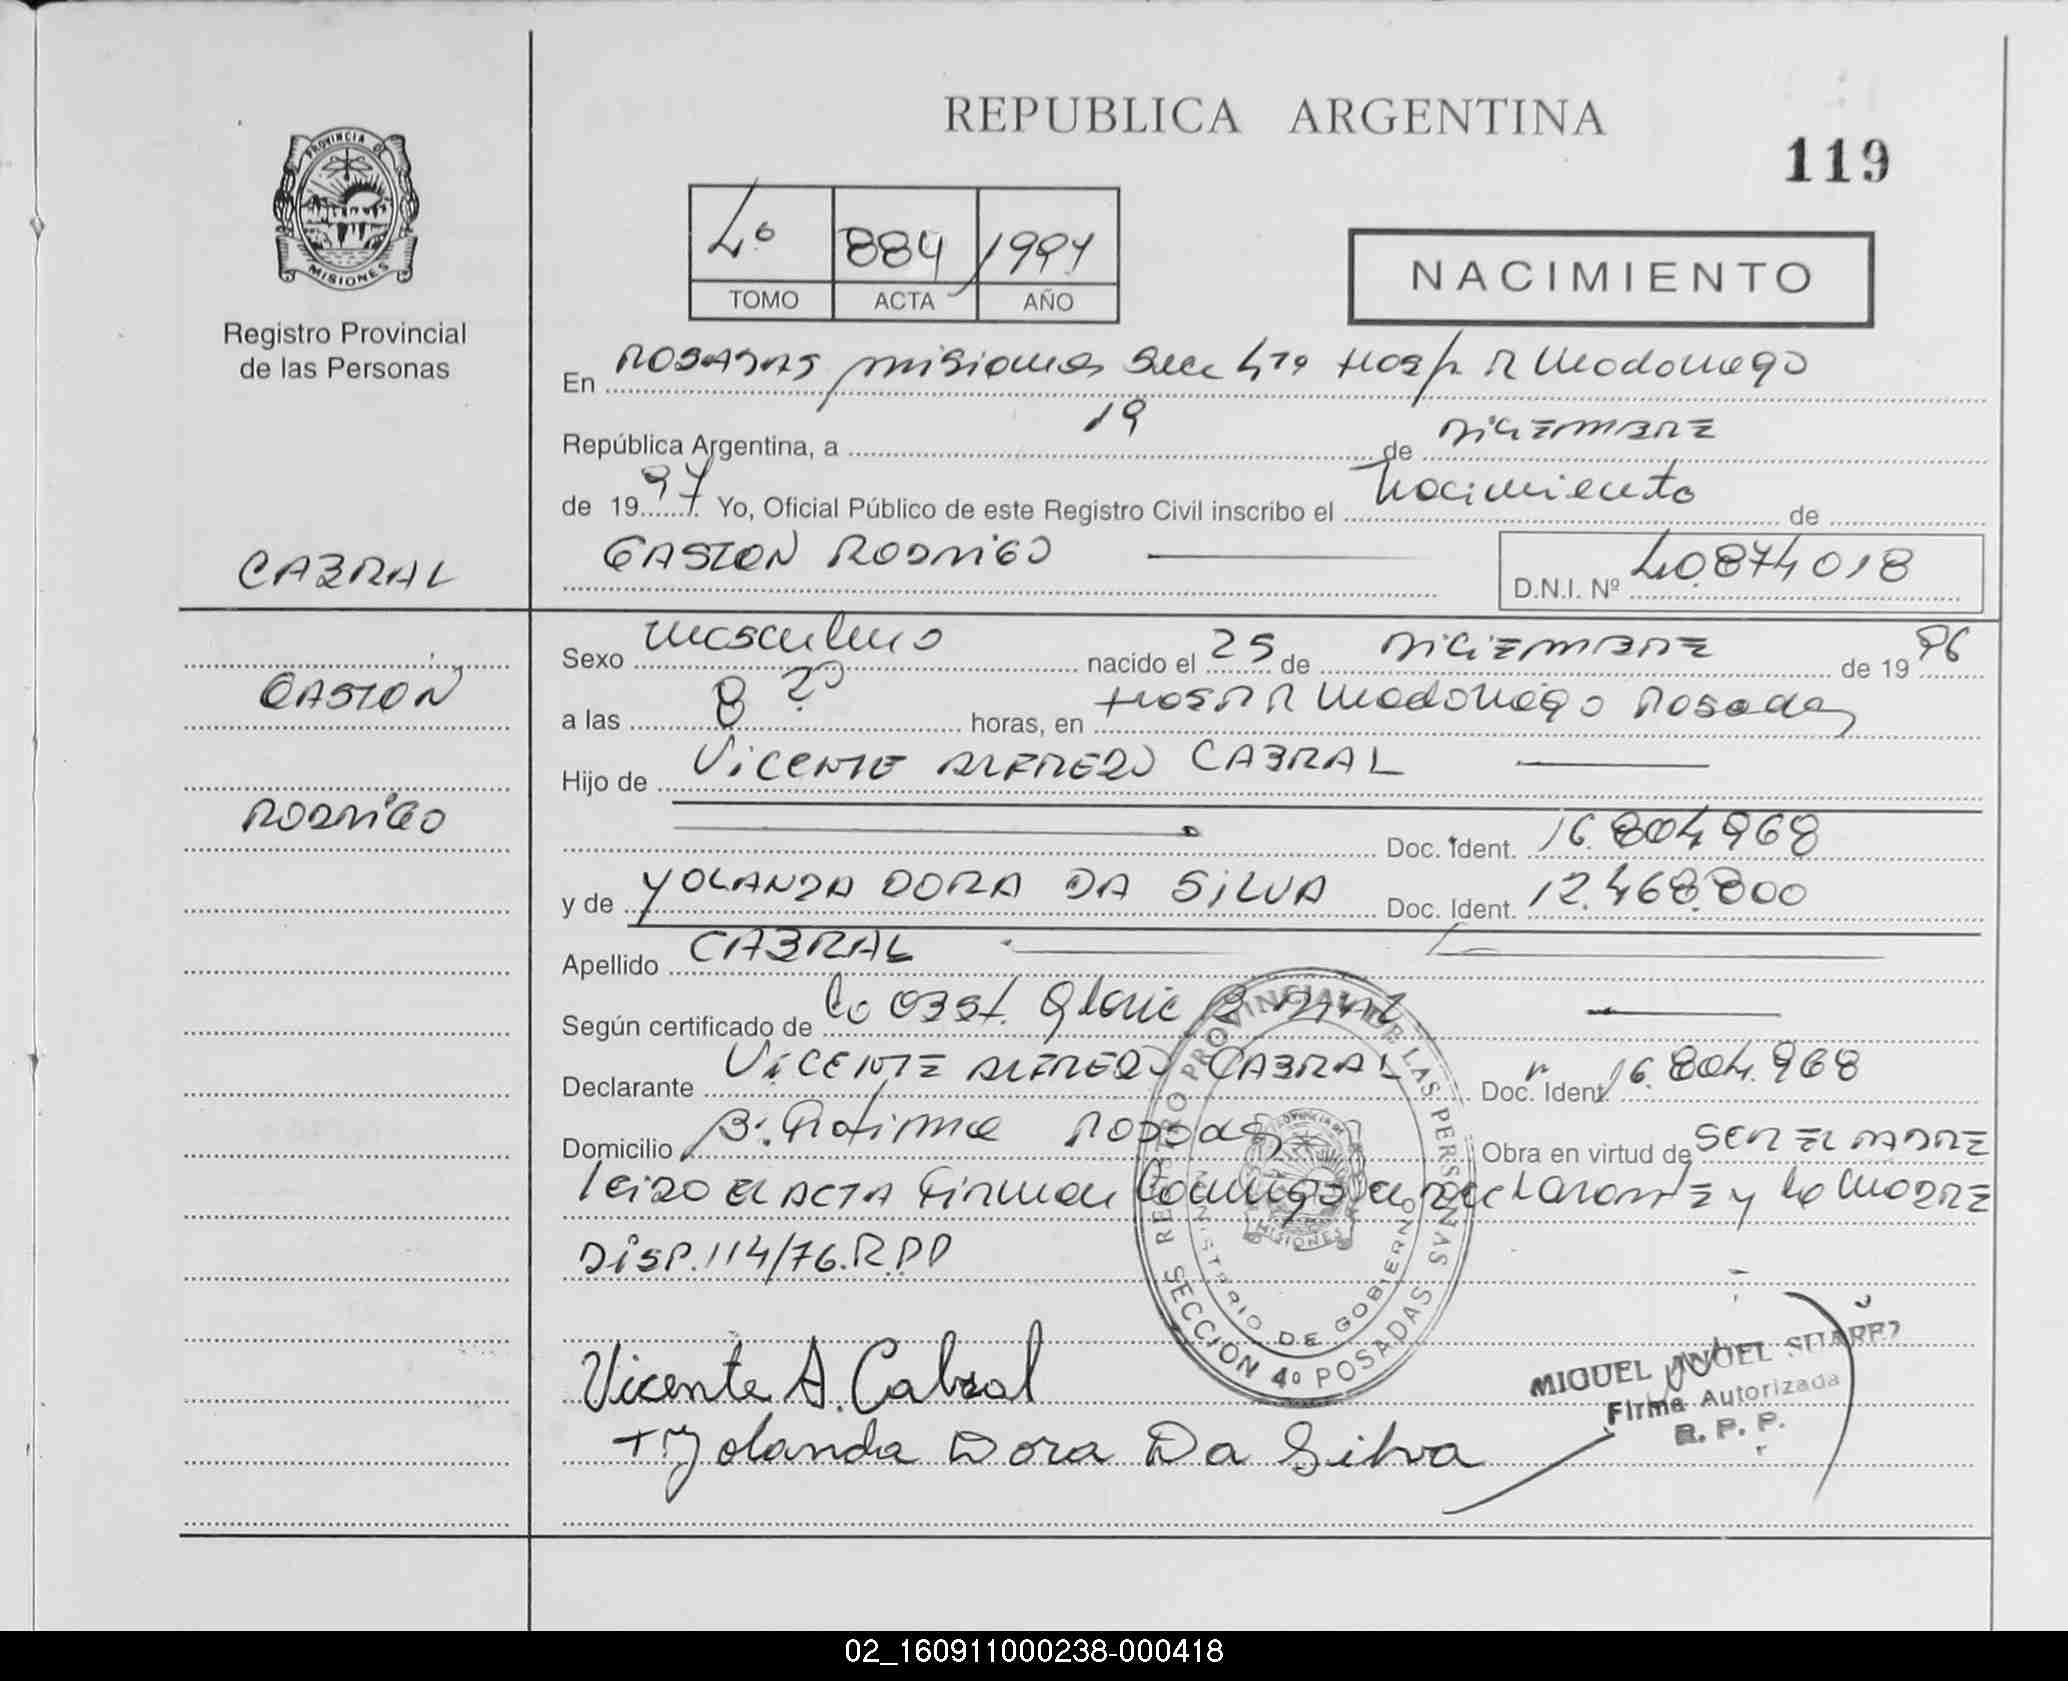 REPUBLICA ARGENTINA
119
PROVINCIA DE
MISIONES
Registro Provincial
de las Personas
4º 884 1997
TOMO ACTA AÑO
NACIMIENTO
En POSADAS, misiones Secc 4ta Hosp R Madariaga
República Argentina, a 19 de DICIEMBRE
de 1997 Yo, Oficial Público de este Registro Civil inscribo el nacimiento de
GASTON RODRIGO
D.N.I. Nº 40.874018
CABRAL
GASTON
RODRIGO
Sexo masculino nacido el 25 de DICIEMBRE de 1996
a las 8 20 horas, en HOSP R Madariaga Posadas
Hijo de VICENTE ALFREDO CABRAL
Doc. Ident. 16.804.968
y de YOLANDA DORA DA SILVA Doc. Ident. 12.468.800
Apellido CABRAL
Según certificado de la OBST.
Declarante VICENTE ALFREDO CABRAL Doc. Ident. 16.804.968
Domicilio B: Fatima Posadas Obra en virtud de SER EL PADRE
leido el ACTA Firman conmigo el declarante y la MADRE
DISP.114/76.R.P.P
REGISTRO PROVINCIAL DE LAS PERSONAS
MINISTERIO DE GOBIERNO
SECCIÓN 4º POSADAS
PROVINCIA DE
MISIONES
Vicente A. Cabral
Yolanda Dora Da Silva
MIGUEL ANGEL SUAREZ
Firma Autorizada
R. P. P.
02_160911000238-000418